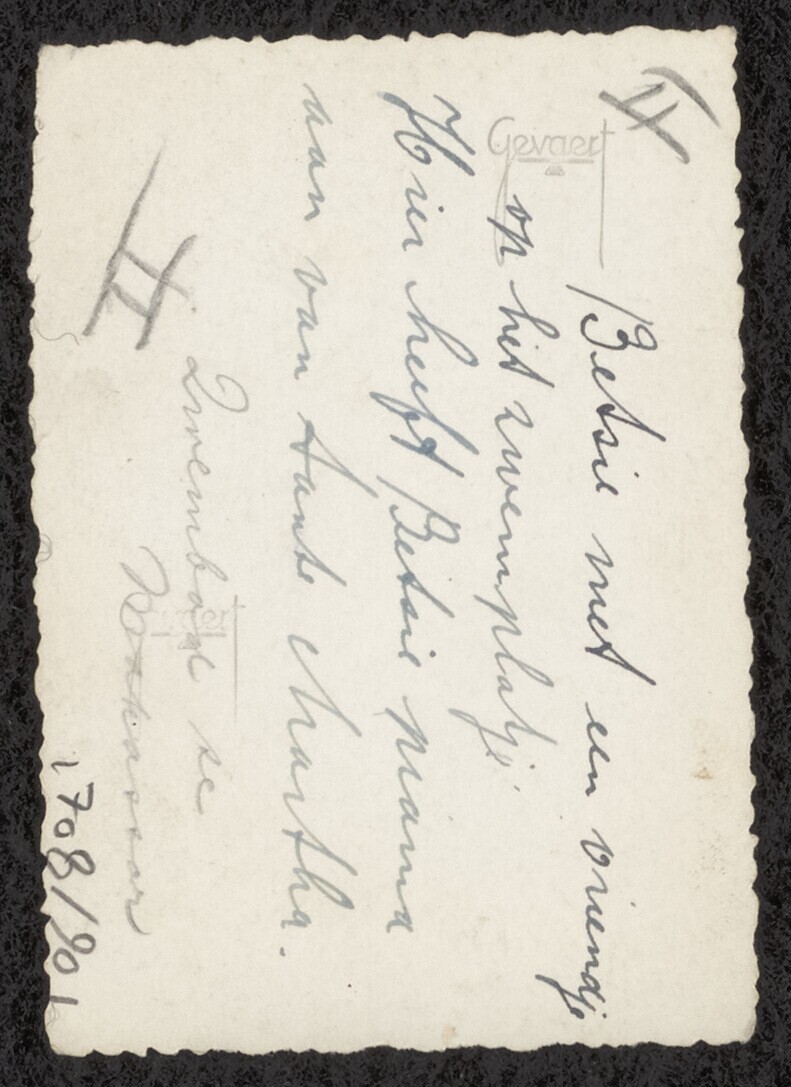 II
Gevaert
Betsie met een vriendje
op het zwemplatje
Hier heeft Betsie mama
aan van tante Martha.
Zwembad te
Makassar
II
1708/901